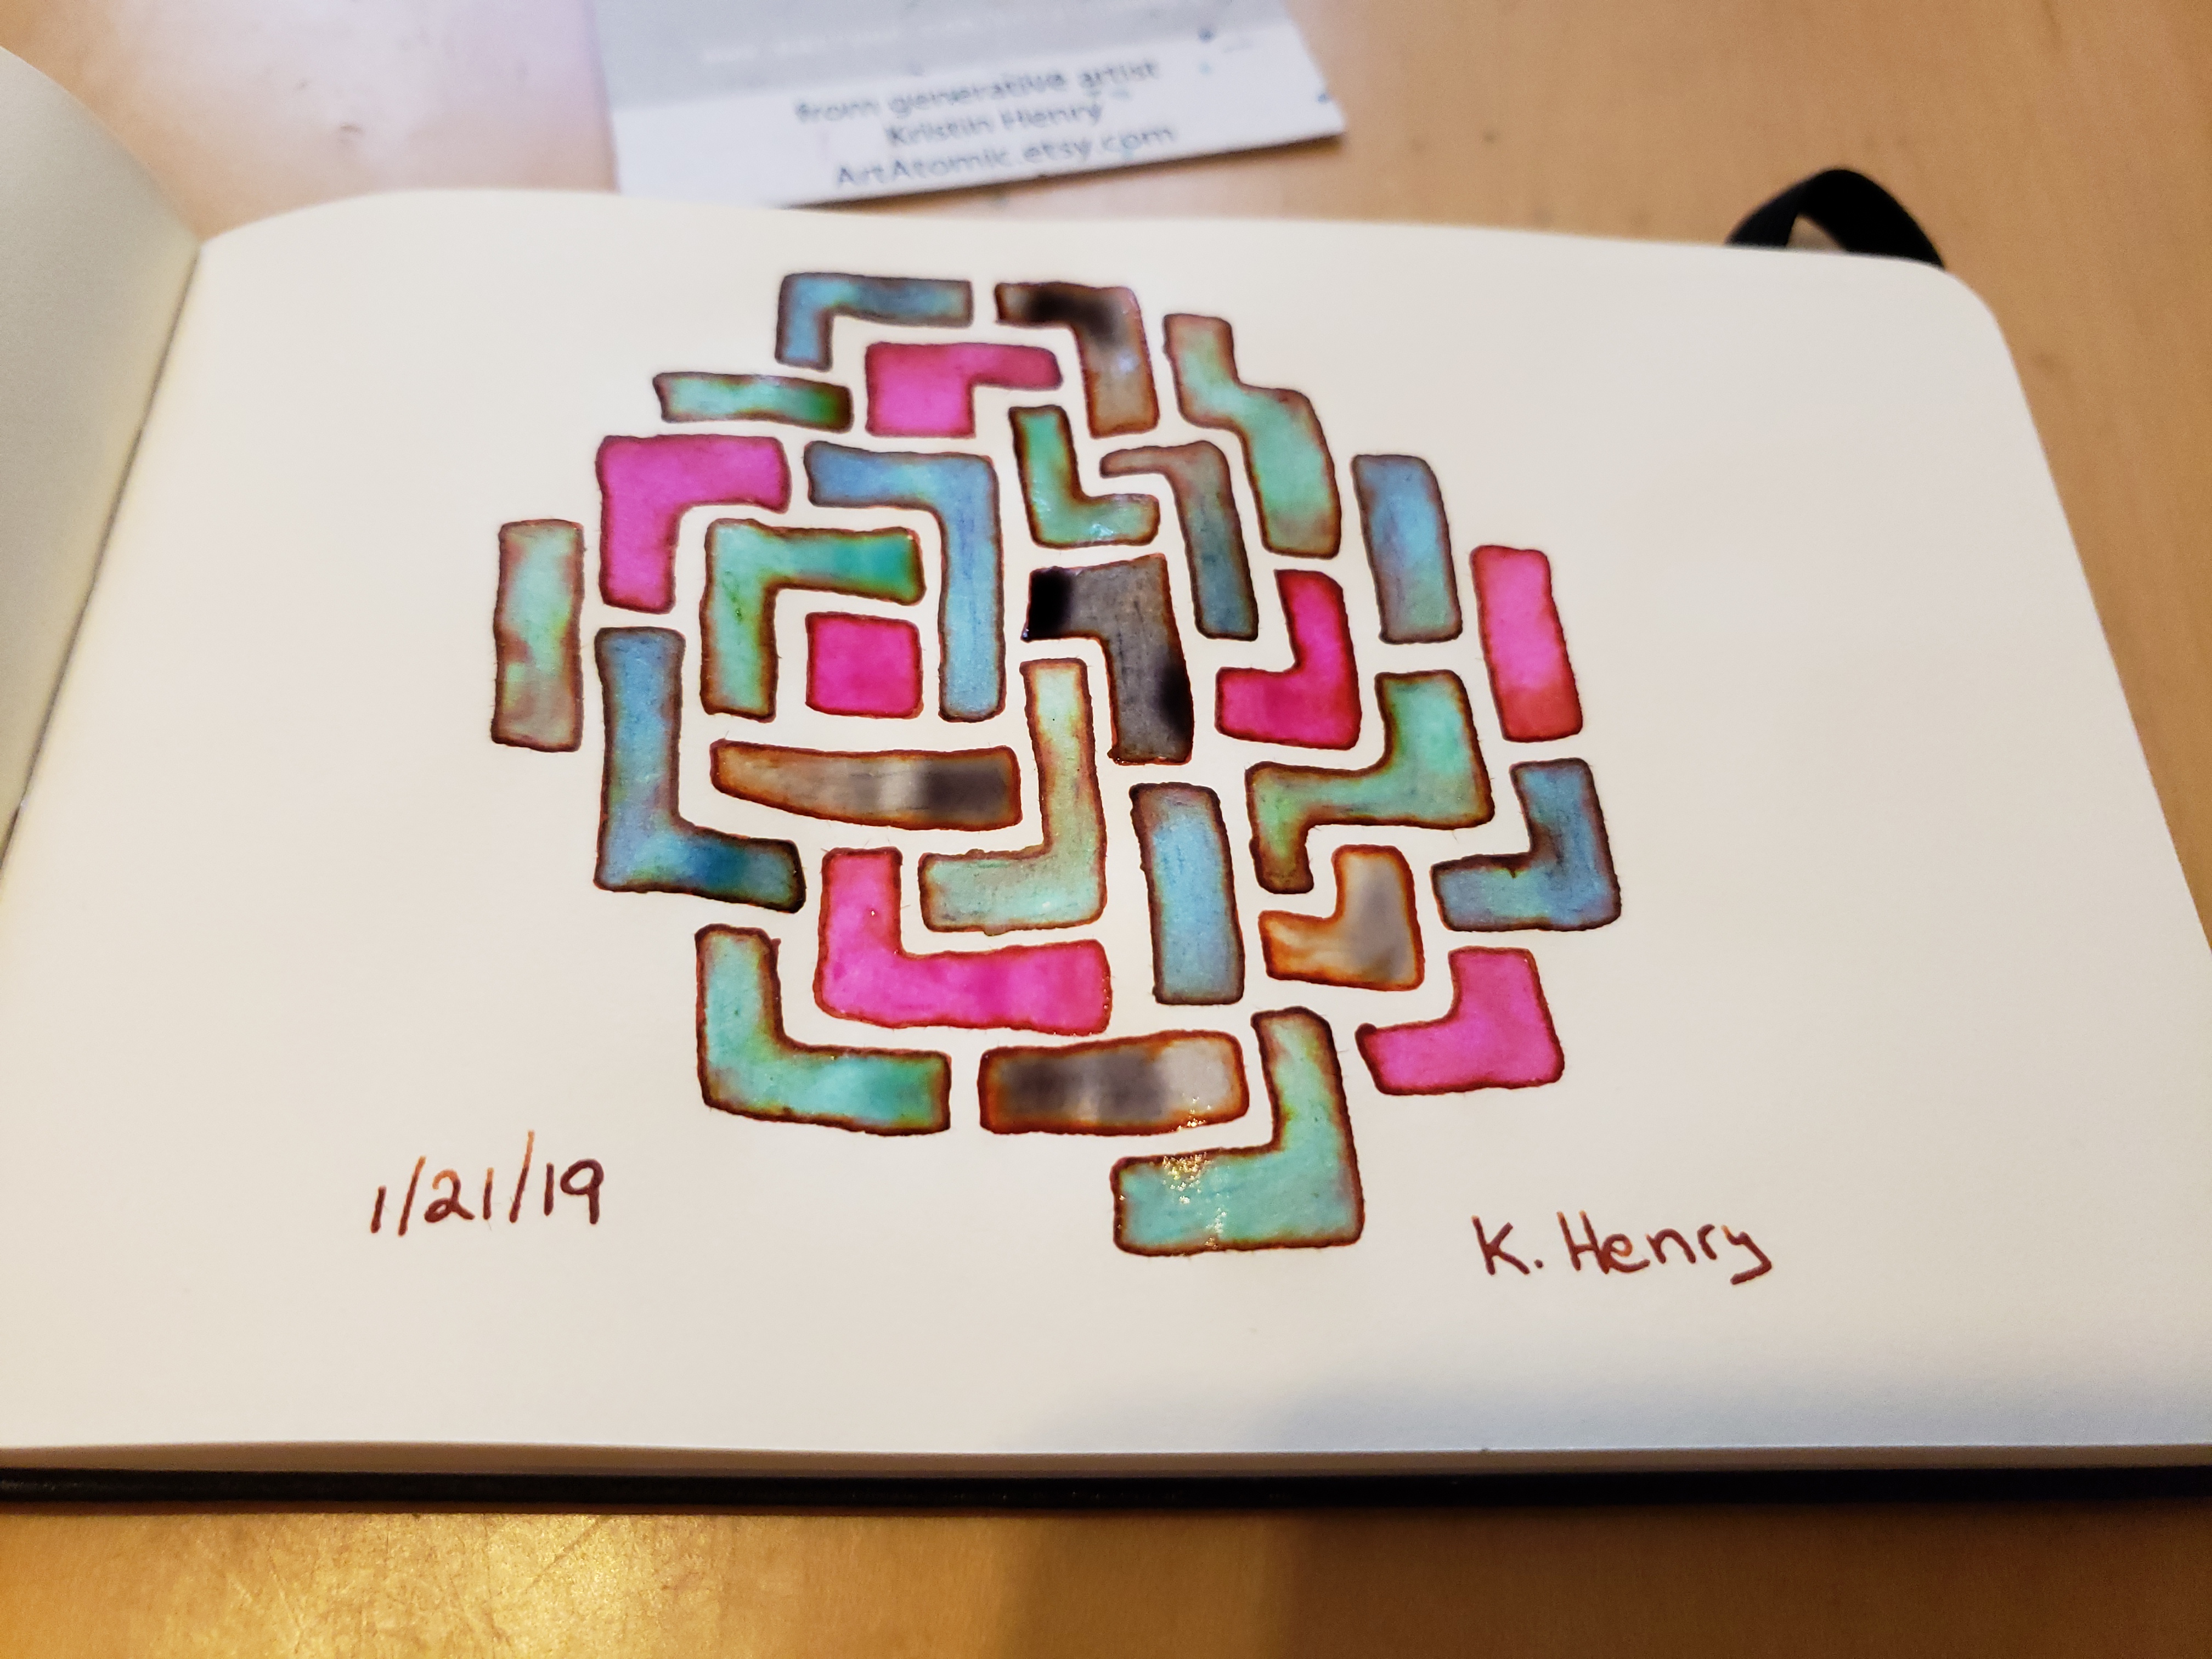 From generative artist
Kristin Henry
ArtAtomic.etsy.com
1/21/19
K. Henry